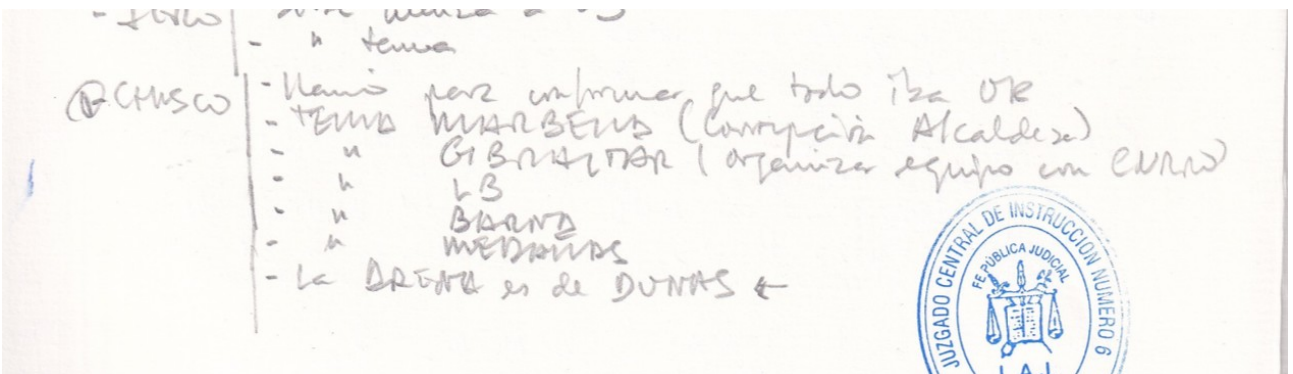 - " tema
CHUSCO - Llamó para confirmar que todo iba OK
- TEMA MARBELLA (Corrupción Alcaldesa)
- " GIBRALTAR (organizar equipo con ENRIQ
- " LB
- " BARNA
- " MEDALLAS
- La ARENA es de DUNAS ←
JUZGADO CENTRAL DE INSTRUCCION NUMERO 6
FE PÚBLICA JUDICIAL
L.A.J.